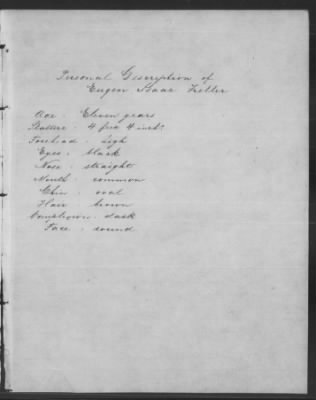 Personal Description of
Eugen Isaac Zeller
Age : Eleven years
Stature : 4 feet 4 inch.
Forehead : high
Eyes : black
Nose : straight
Mouth : common
Chin : oval
Hair : brown
Complexion : dark
Face : round